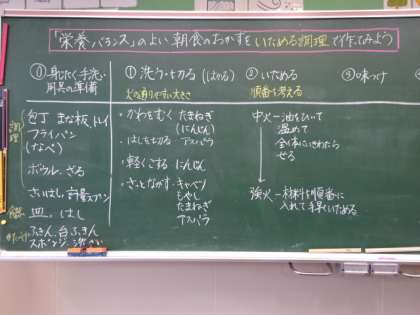 「栄養バランス」のよい朝食のおかずをいためる調理で作ってみよう
⓪身じたく手洗い
用具の準備
調理
包丁 まな板、トレイ
フライパン
(なべ)
ボウル・ざる
さいばし・計量スプン
皿 はし
ふきん、台ふきん
スポンジ
①洗う・切る(はかる)
火の通りやすい大きさ
・かわをむく たまねぎ
(にんじん)
・はしを切る アスパラ
・軽くこする にんじん
・さっとながす・キャベツ
もやし
たまねぎ
アスパラ
②いためる
順番を考える
中火ー油をひいて
温めて
全体にいきわたら
せる
強火ー材料を順番に
入れて手早くいためる
③味つけ